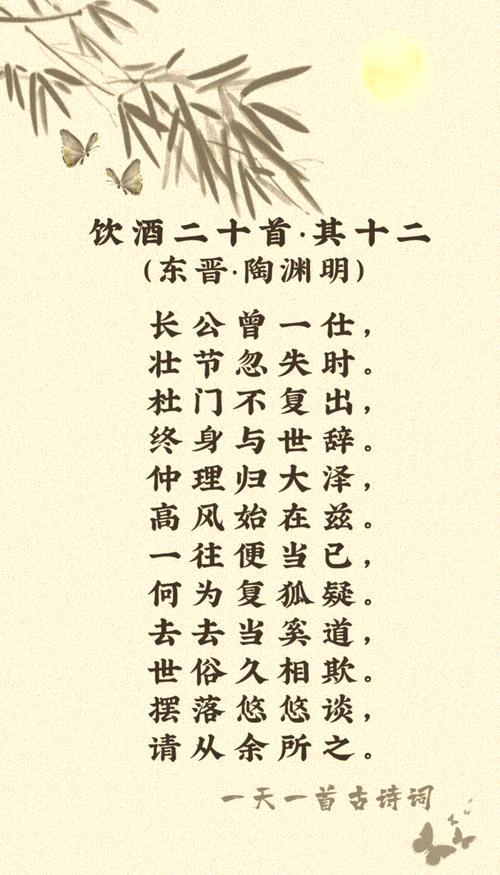 饮酒二十首·其十二
(东晋·陶渊明)
长公曾一仕，
壮节忽失时。
杜门不复出，
终身与世辞。
仲理归大泽，
高风始在兹。
一往便当已，
何为复狐疑。
去去当奚道，
世俗久相欺。
摆落悠悠谈，
请从余所之。
一天一首古诗词